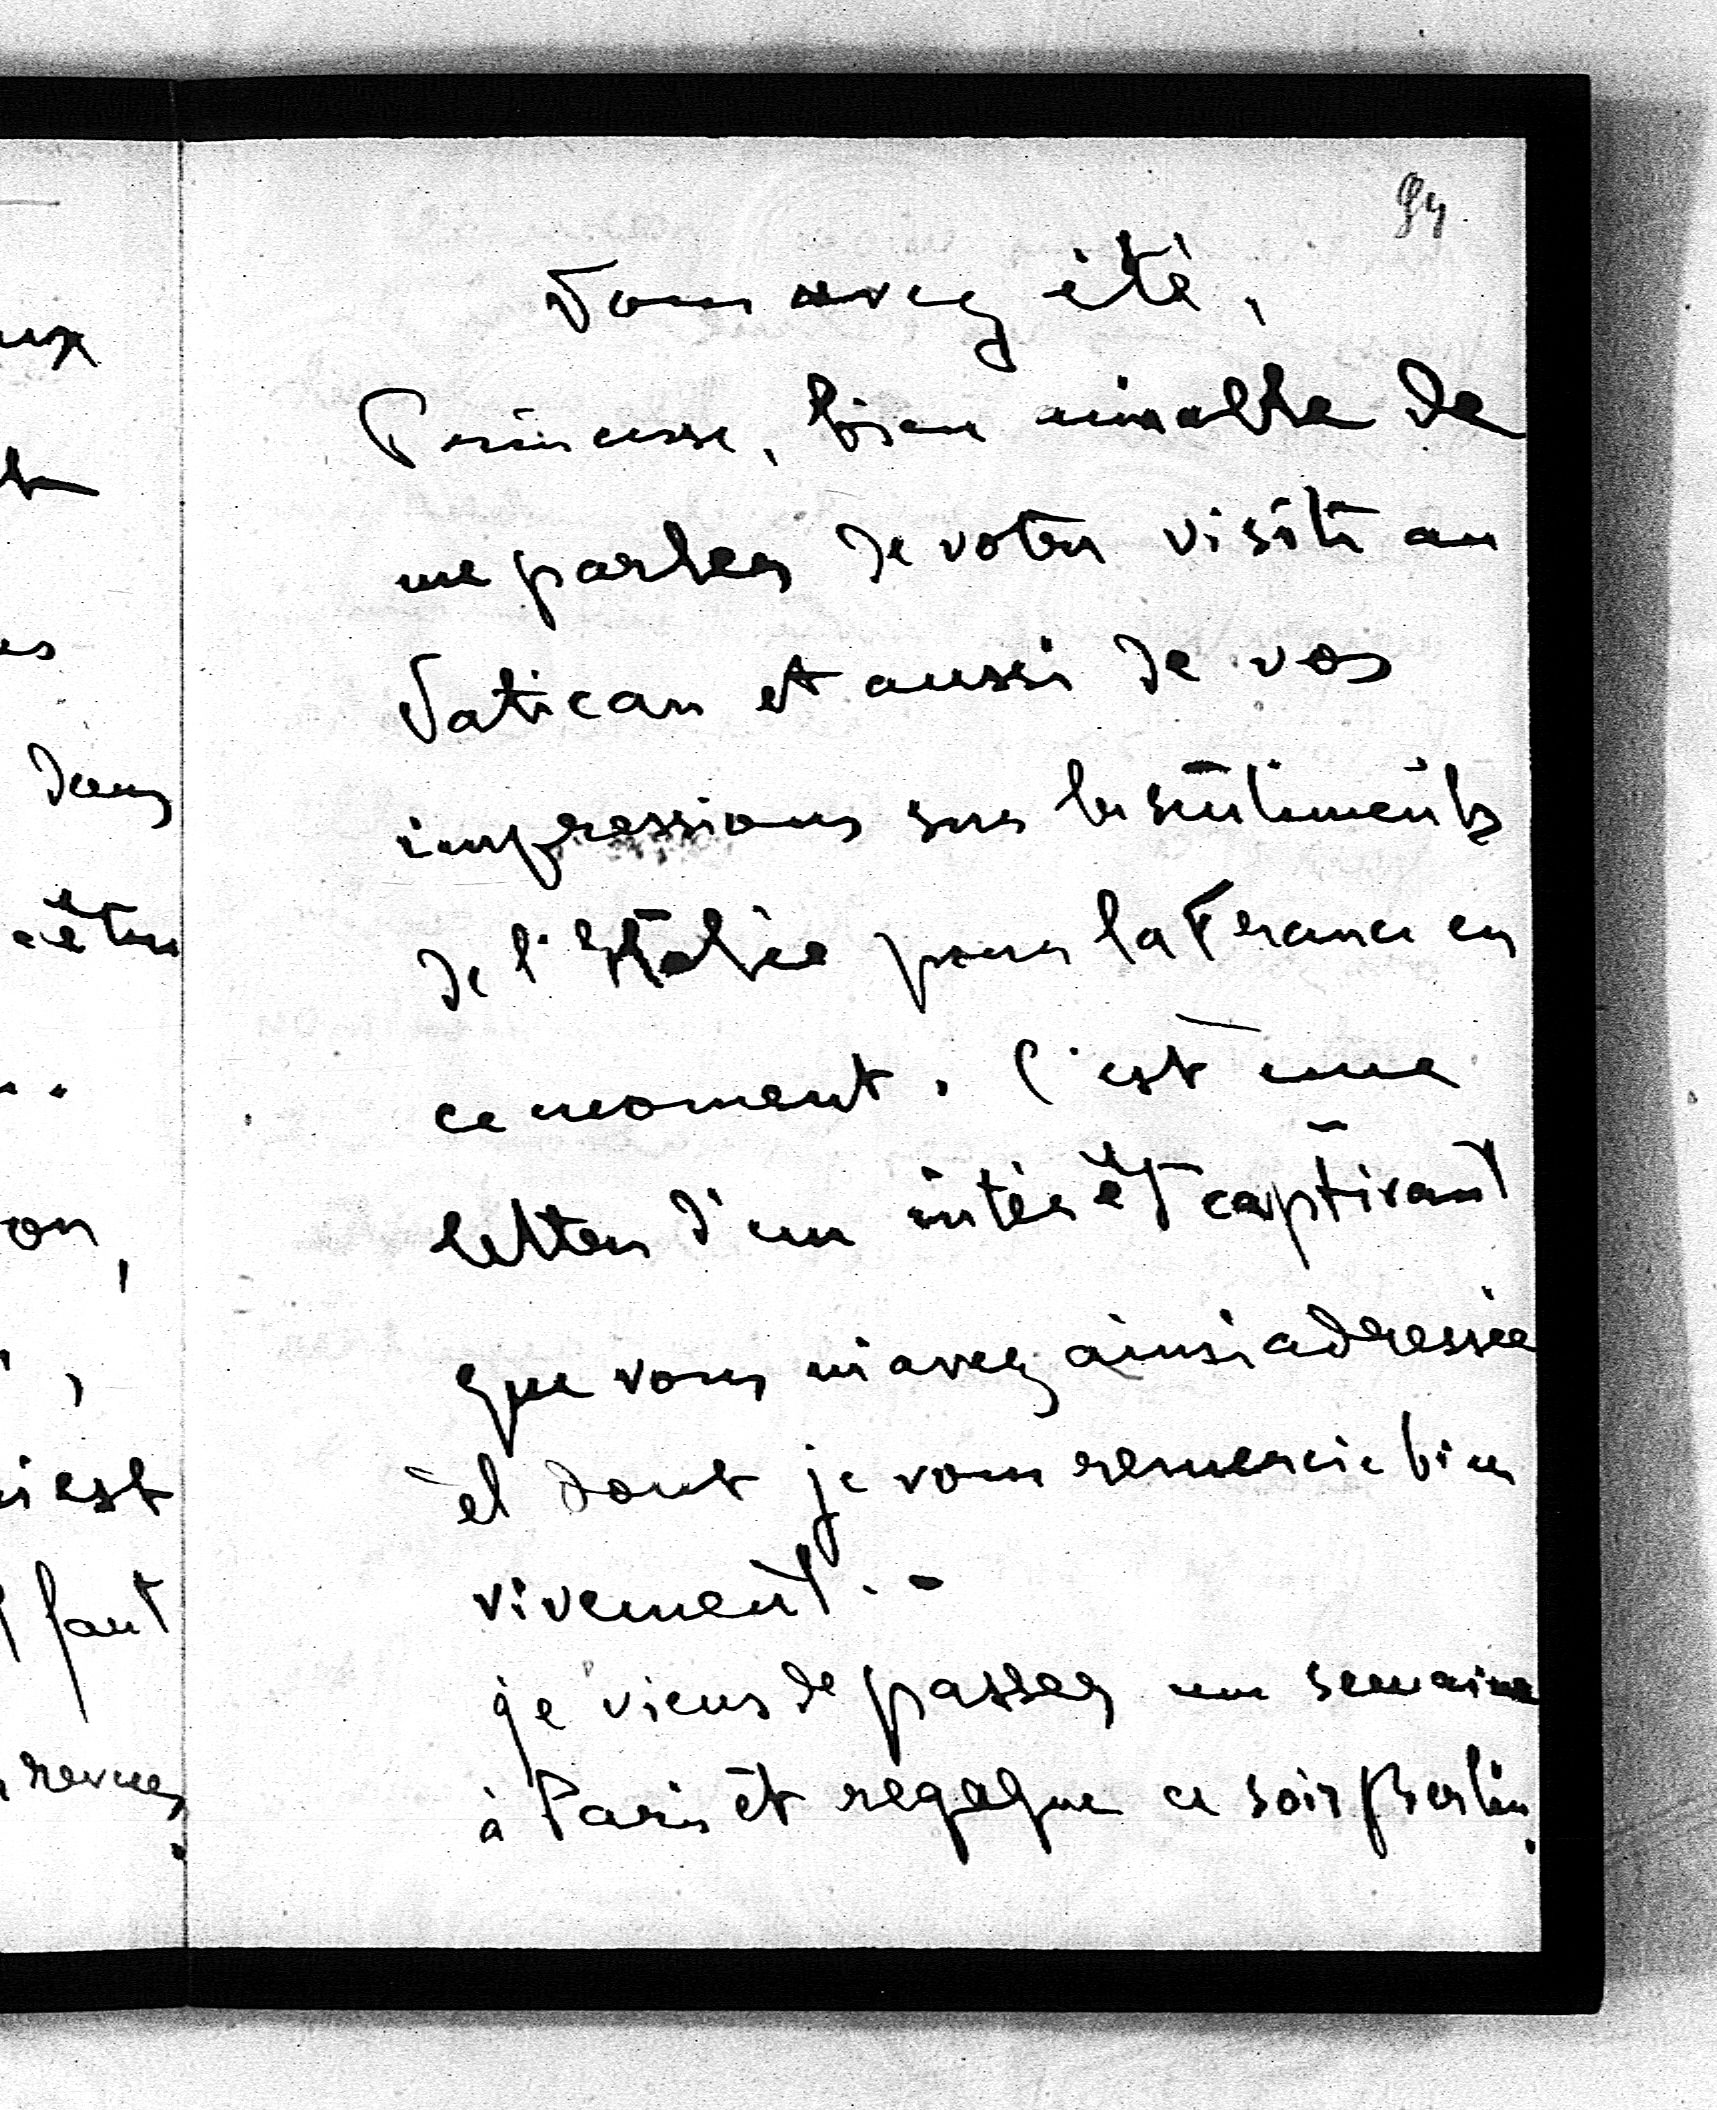 94
Vous avez été,
Princesse, bien aimable de
me parler de votre visite au
Vatican et aussi de vos
impressions sur les sentiments
de l'Italie pour la France en
ce moment. C'est une
lettre d'un intérêt captivant
que vous m'avez ainsi adressée
et dont je vous remercie bien
vivement. -
je viens de passer une semaine
à Paris et regagne ce soir Berlin.
ux
es
dans
être
on,
est
faut
revues